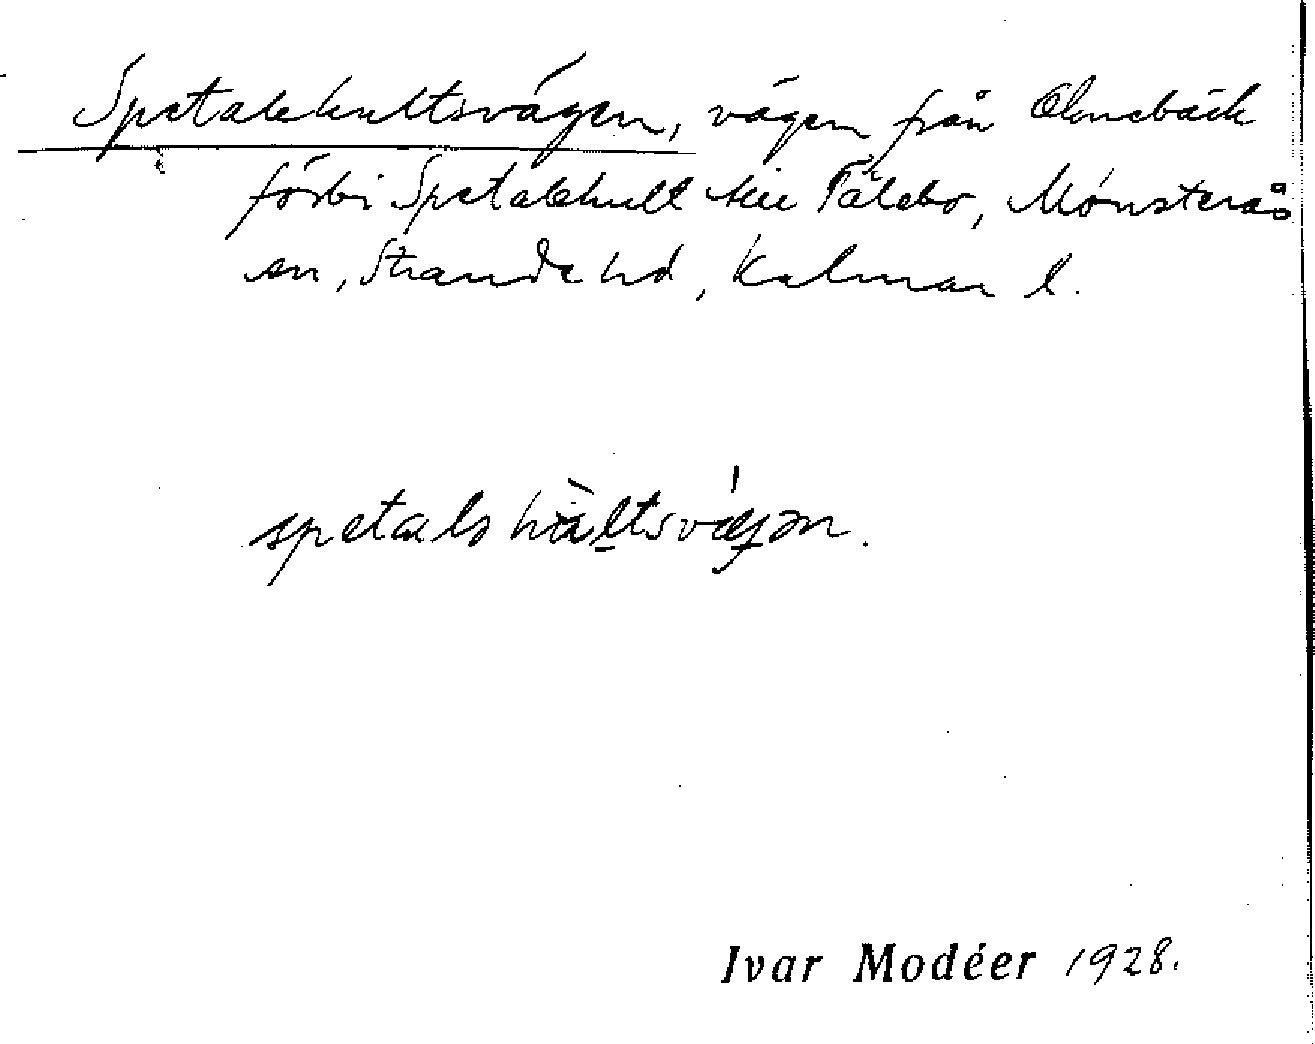 Spetalekultsvägen, vägen från Elmebäck
förbi Spetalekult till Tålebo, Mönsterås
sn, Stranda hd, Kalmar l.
spetals hàltsvægən.
Ivar Modéer 1928.